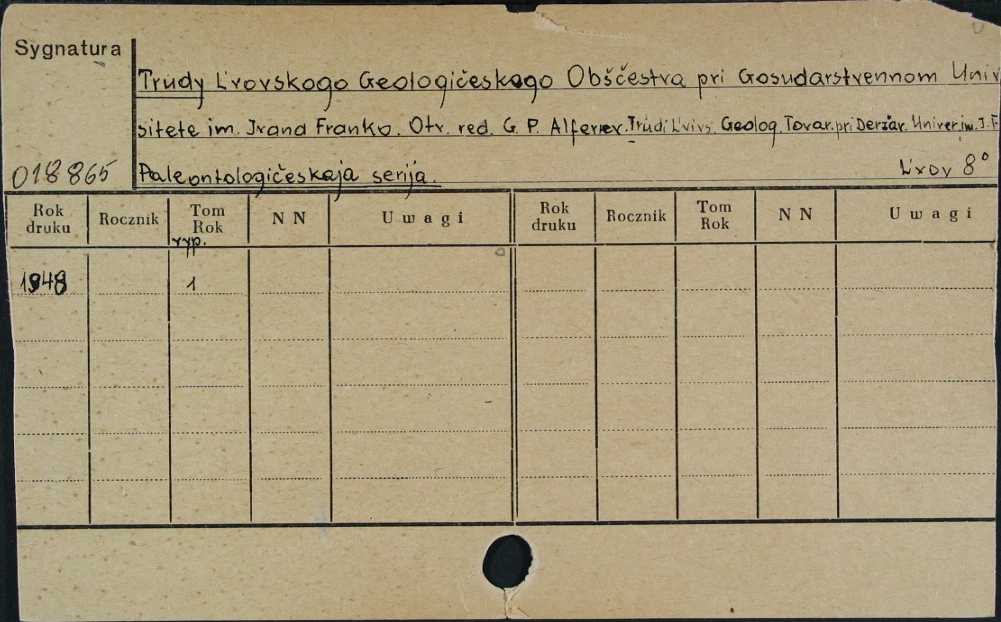 Sygnatura
Trudy L'vovskogo Geologičeskogo Obščestva pri Gosudarstvennom Univ
sitete im. Ivana Franko. Otv. red. G. P. Trudi L'vivs. Geolog. Tovar. pri Deržav. Univer. im. I. F.
018865 Paleontologičeskaja serija. L'vov 8°
Rok druku Rocznik Tom Rok NN Uwagi Rok druku Rocznik Tom Rok NN Uwagi
vyp.
1948 1